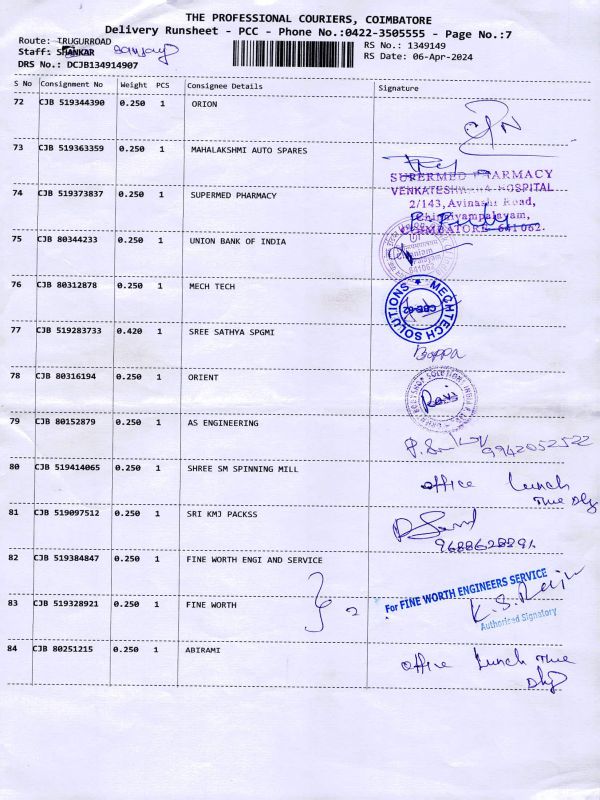 THE PROFESSIONAL COURIERS, COIMBATORE
Delivery Runsheet - PCC - Phone No.:0422-3505555 - Page No.:7
Route: TRUGURROAD RS No.: 1349149
Staff: SHANKAR Sanjay RS Date: 06-Apr-2024
DRS No.: DCJB134914907
S No Consignment No Weight PCS Consignee Details Signature
72 CJB 519344390 0.250 1 ORION
73 CJB 519363359 0.250 1 MAHALAKSHMI AUTO SPARES
SUPERMED PHARMACY
VENKATESHWARA HOSPITAL
74 CJB 519373837 0.250 1 SUPERMED PHARMACY 2/143, Avinashi Road,
Chinniyampalayam,
COIMBATORE 641 062.
75 CJB 80344233 0.250 1 UNION BANK OF INDIA
641062
76 CJB 80312878 0.250 1 MECH TECH MECHTECH SOLUTIONS CBE-62
77 CJB 519283733 0.420 1 SREE SATHYA SPGMI
Boopa
78 CJB 80316194 0.250 1 ORIENT Ravi
79 CJB 80152879 0.250 1 AS ENGINEERING
9942052522
80 CJB 519414065 0.250 1 SHREE SM SPINNING MILL office Lunch
Time
81 CJB 519097512 0.250 1 SRI KMJ PACKSS
82 CJB 519384847 0.250 1 FINE WORTH ENGI AND SERVICE
83 CJB 519328921 0.250 1 FINE WORTH 2 For FINE WORTH ENGINEERS SERVICE
K.S.Raju
Authorised Signatory
84 CJB 80251215 0.250 1 ABIRAMI office Lunch Time